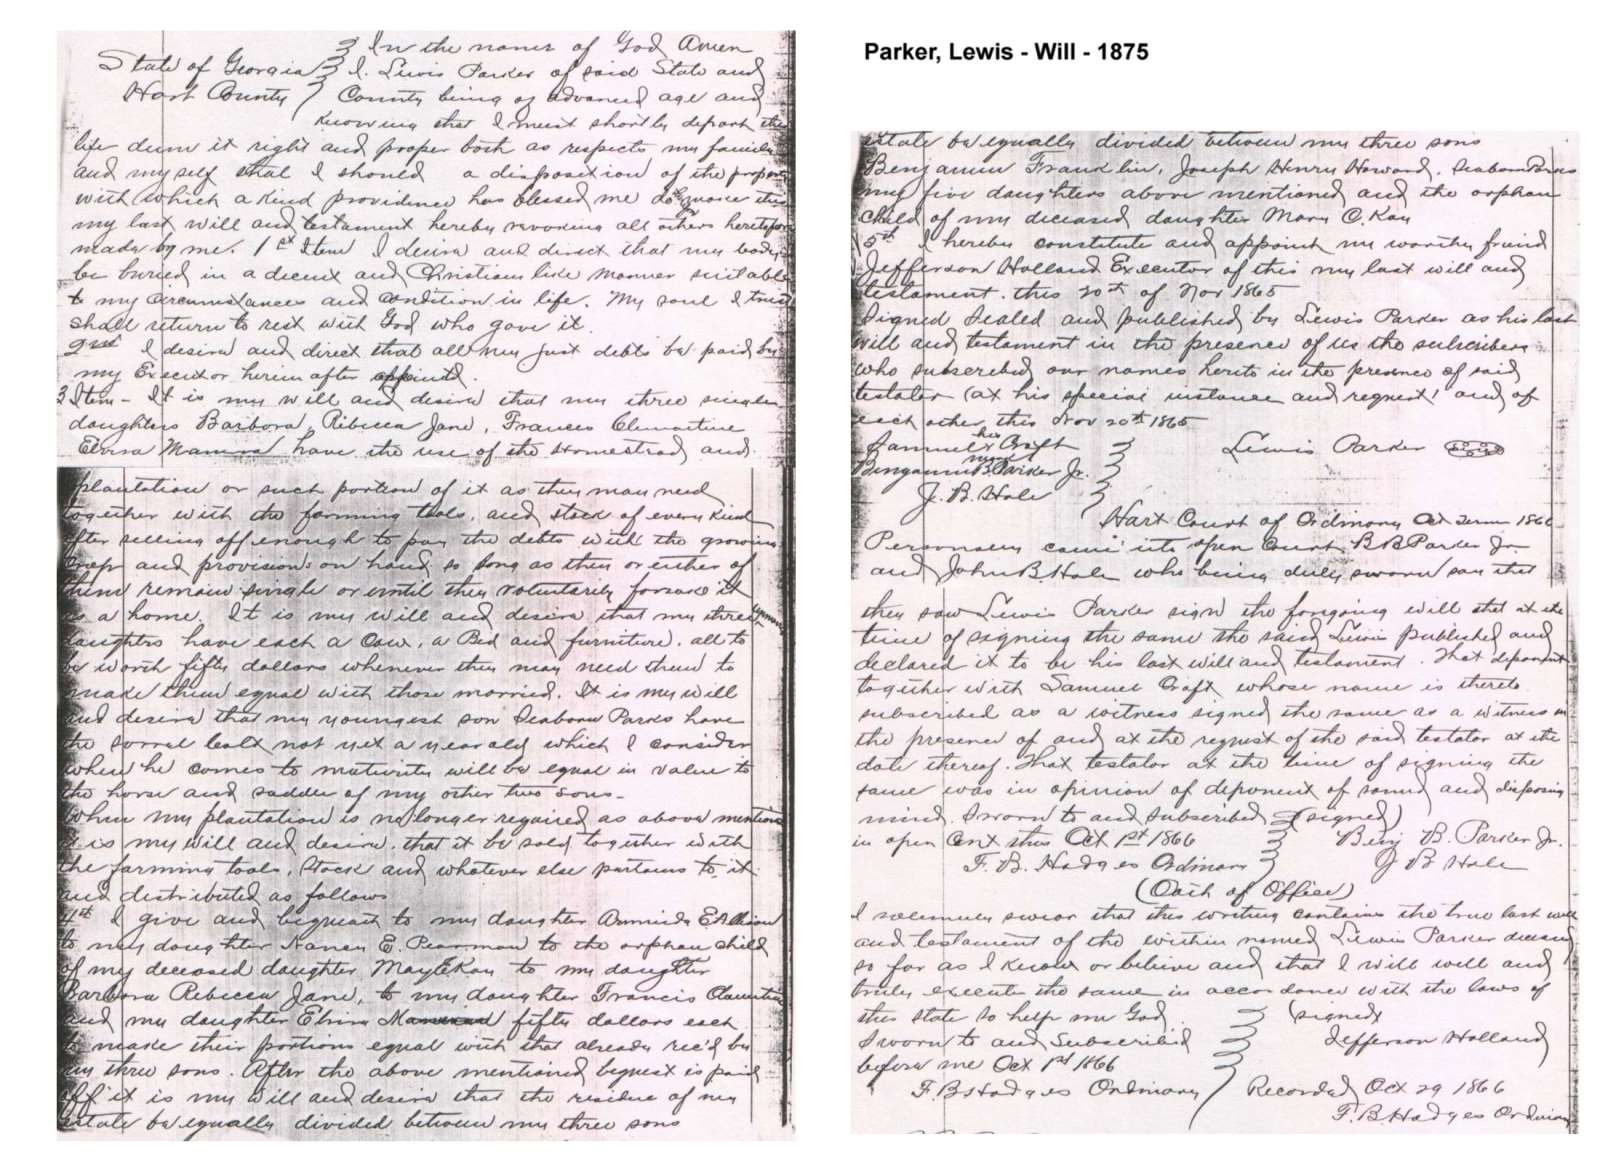 In the name of God Amen
State of Georgia } I. Lewis Parker of said State and
Hart County } County being of advanced age and
knowing that I must shortly depart this
life deem it right and proper both as respects my family
and myself that I should a disposition of the property
with which a kind providence has blessed me do make this
my last will and testament hereby revoking all others heretofore
made by me. 1st Item I desire and direct that my body
be buried in a decent and Christian like manner suitable
to my circumstances and condition in life. My soul I trust
shall return to rest with God who gave it.
2nd I desire and direct that all my just debts be paid by
my Executor herein after appointed.
3 Item - It is my will and desire that my three single
daughters Barbora Ribecca Jane, Frances Clementine
Elvira have the use of the Homestead and
plantation or such portion of it as they may need
together with the farming tools, and stock of every kind
after selling off enough to pay the debts with the growing
crop and provisions on hand so long as they or either of
them remain single or until they voluntarily forsake it
as a home. It is my will and desire that my three
daughters have each a Cow, a Bed and furniture. all to
be worth fifty dollars whenever they may need them to
make them equal with those married. It is my will
and desire that my youngest son Seaborn Parks have
the sorrel colt not yet a year old which I consider
when he comes to maturity will be equal in value to
the horse and saddle of my other two sons-
When my plantation is no longer required as above mentioned
it is my will and desire, that it be sold together with
the farming tools, stock and whatever else pertains to it
and distributed as follows
4th I give and bequeath to my daughter Arminda E. Allison
to my daughter Nancy E. Pearman to the orphan child
of my deceased daughter Mary C Kay to my daughter
Barbora Rebecca Jane, to my daughter Francis Clementine
and my daughter Elvira fifty dollars each
to make their portions equal with that already rec'd by
my three sons. After the above mentioned bequest is paid
off it is my will and desire that the residue of my
estate be equally divided between my three sons
Parker, Lewis - Will - 1875
estate be equally divided between my three sons
Benjamin Franklin, Joseph Henry Howard, Seaborn Parks
my five daughters above mentioned and the orphan
child of my deceased daughter Mary C. Kay
5th I hereby constitute and appoint my worthy friend
Jefferson Holland Executor of this my last will and
testament. this 20th of Nov 1865
Signed Sealed and published by Lewis Parker as his last
will and testament in the presence of us the subscribers
who subscribed our names hereto in the presence of said
testator (at his special instance and request) and of
each other this Nov 20th 1865
Samuel his Craft } Lewis Parker
Benjamin B. Parker Jr.
J. B. Hale
Hart Court of Ordinary Oct Term 1866
Personally came into open Court B B Parker Jr.
and John B. Hale who being duly sworn say that
they saw Lewis Parker sign the forgoing will that at the
time of signing the same the said Lewis published and
declared it to be his last will and testament. That deponent
together with Samuel Craft whose name is thereto
subscribed as a witness signed the same as a witness in
the presence of and at the request of the said testator at the
date thereof. That testator at the time of signing the
same was in opinion of deponent of sound and disposing
mind. Sworn to and subscribed (signed)
in open Cort this Oct 1st 1866 } Benj B. Parker Jr.
F. B. Hodges Ordinary } J B Hale
(Oath of Office)
I solemnly swear that this writing contains the true last will
and testament of the within named Lewis Parker deceased
so far as I know or believe and that I will well and
truly execute the same in accordance with the laws of
this state So help me God. } (signed)
Sworn to and Subscribed } Jefferson Holland
before me Oct 1st 1866
F. B Hodges Ordinary } Recorded Oct 29 1866
F. B. Hodges Ordinary